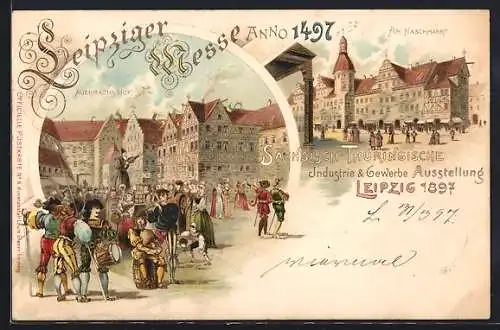 Leipziger Messe ANNO 1497
AUERBACHS HOF
AM NASCHMARKT
SÄCHSISCH-THÜRINGISCHE
Industrie & Gewerbe Ausstellung
LEIPZIG 1897
OFFICIELLE POSTKARTE Nº